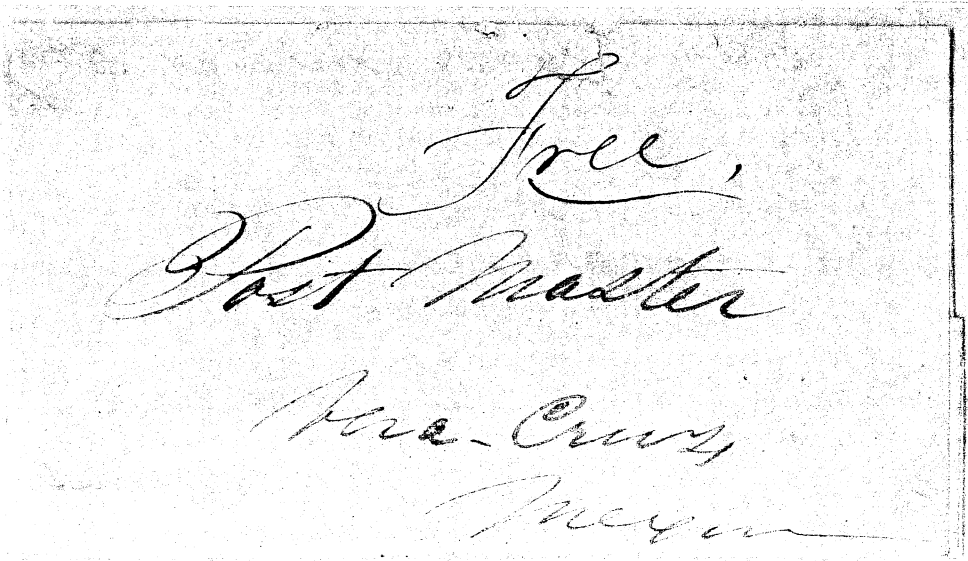 Free,
Post Master
Vera-Cruz,
Mexico